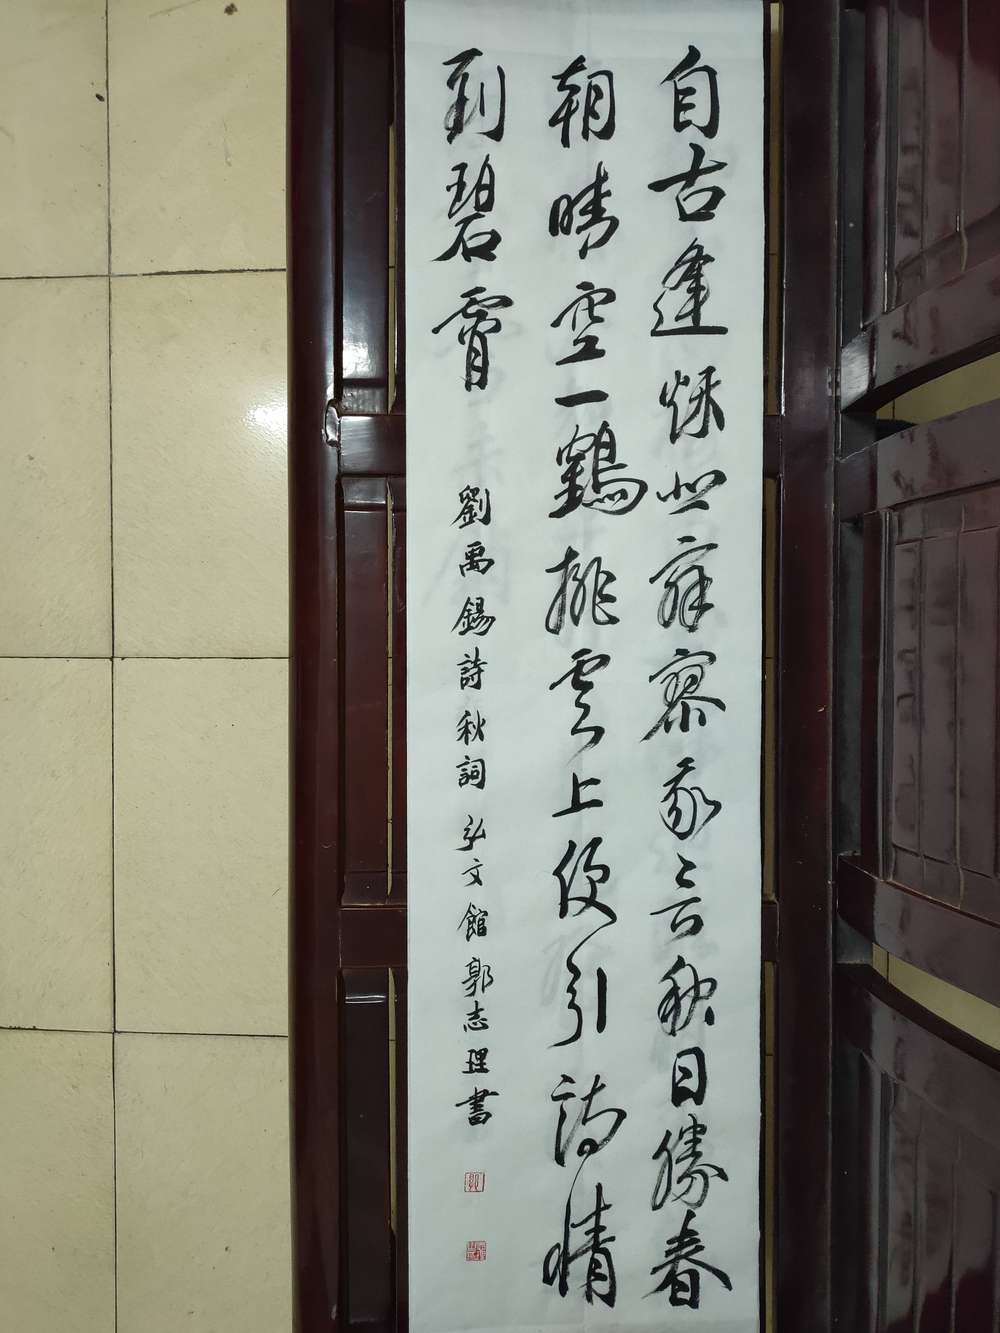 自古逢秋悲寂寥我言秋日勝春
朝晴空一鶴排雲上便引詩情
到碧霄
劉禹錫詩秋詞弘文館郭志理書